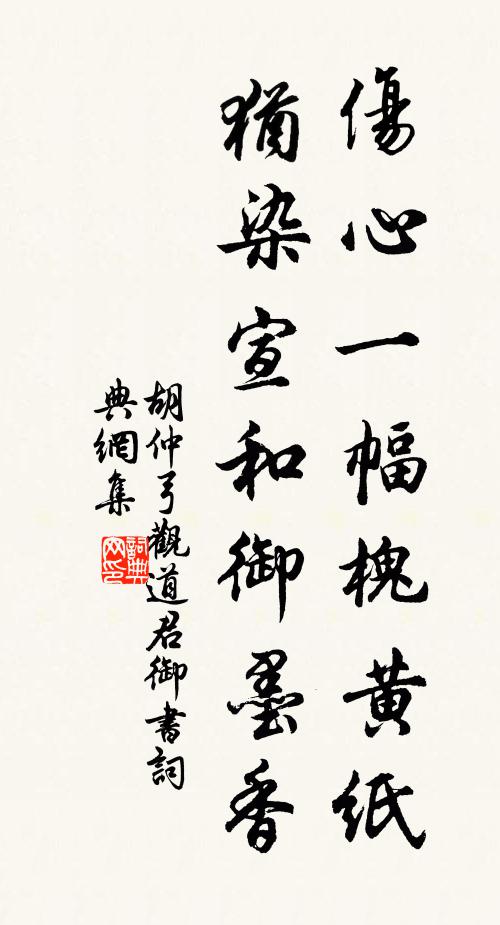 傷心一幅槐黄紙
猶染宣和御墨香
胡仲弓觀道君御書詞
典網集
詞典网印